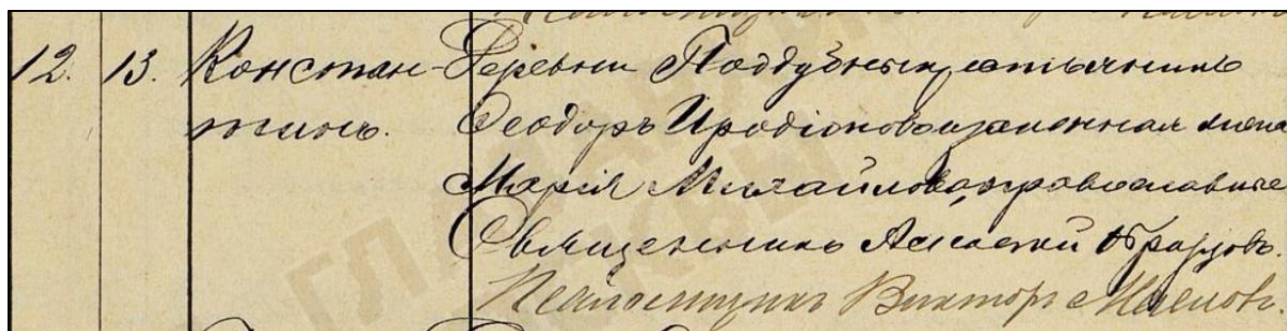 12. 13. Констан- Деревни Поддубной,
тинъ. Ѳеодоръ Иродіоновъ и законная жена
Марія Михайлова, православные
Священникъ Алексѣй Образцовъ.
Псаломщикъ Викторъ